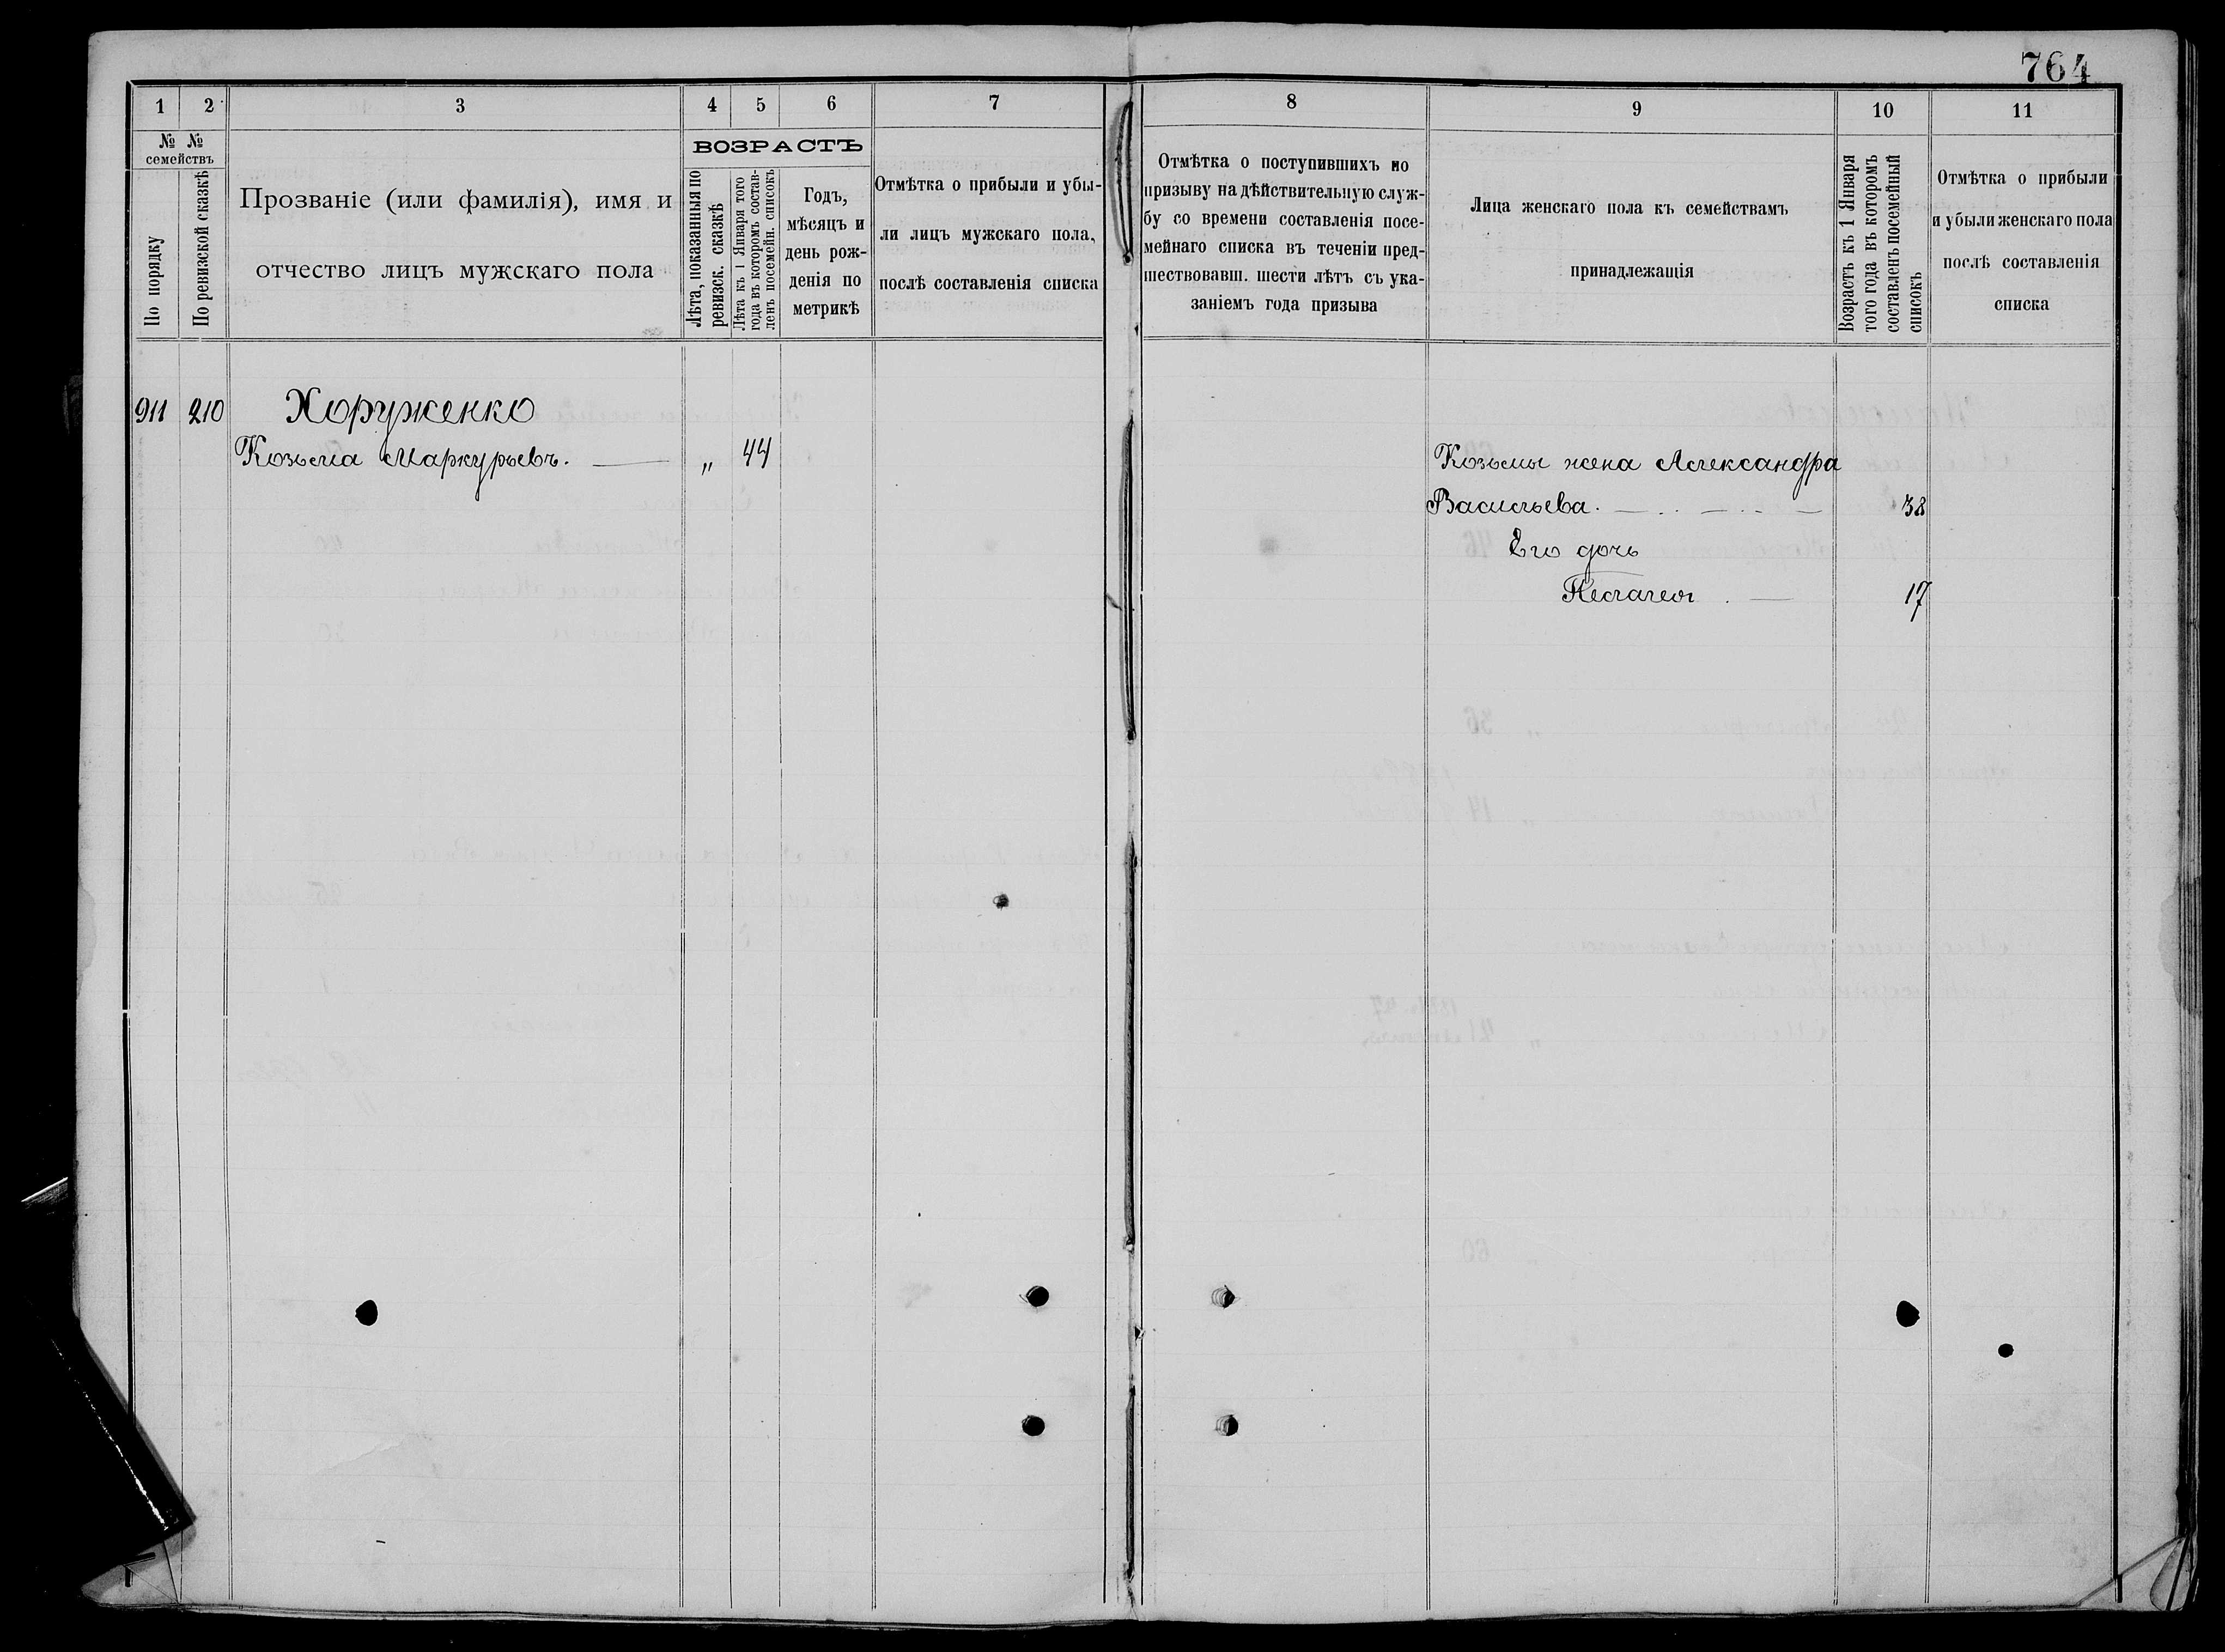 764
1 2 3 4 5 6 7 8 9 10 11
№ № семействъ
По порядку
По ревизской сказкѣ
Прозваніе (или фамилія), имя и
отчество лицъ мужскаго пола
ВОЗРАСТЪ
Лѣта, показанныя по
ревизск. сказкѣ
Лѣта къ 1 Января того
года въ которомъ состав-
ленъ посемейн. списокъ
Годъ,
мѣсяцъ и
день рож-
денія по
метрикѣ
Отмѣтка о прибыли и убы-
ли лицъ мужскаго пола,
послѣ составленія списка
Отмѣтка о поступившихъ по
призыву на дѣйствительную служ-
бу со времени составленія посе-
мейнаго списка въ теченіи пред-
шествовавш. шести лѣтъ съ ука-
заніемъ года призыва
Лица женскаго пола къ семействамъ
принадлежащія
Возрастъ къ 1 Января
того года въ которомъ
составленъ посемейный
списокъ
Отмѣтка о прибыли
и убыли женскаго пола
послѣ составленія
списка
911 210 Хоруженко
Козьма Маркурьевъ. — „ 44
Козьмы жена Александра
Васильева. — 38
Его дочь
Пелагея . — 17